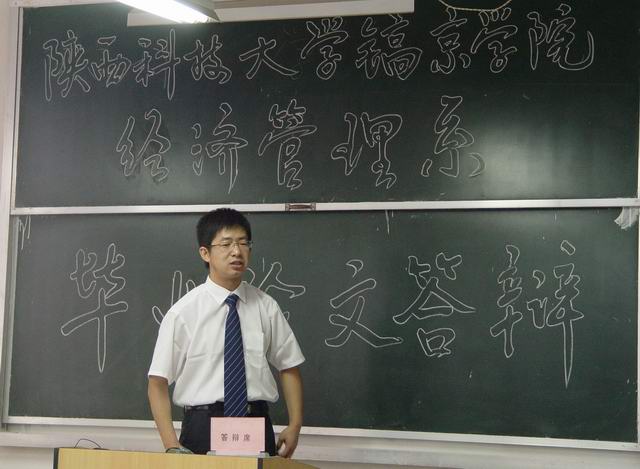 陕西科技大学镐京学院
经济管理系
毕业论文答辩
答辩席